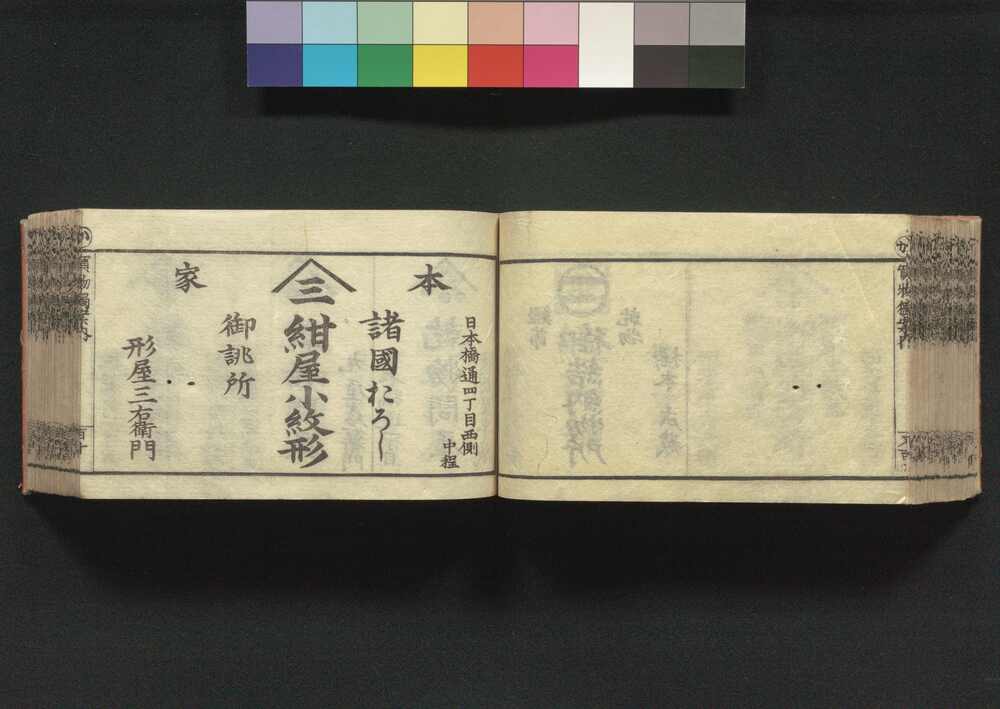 本家
日本橋通四丁目西側
中程
諸國おろし
三
紺屋小紋形
御誂所
形屋三右衛門